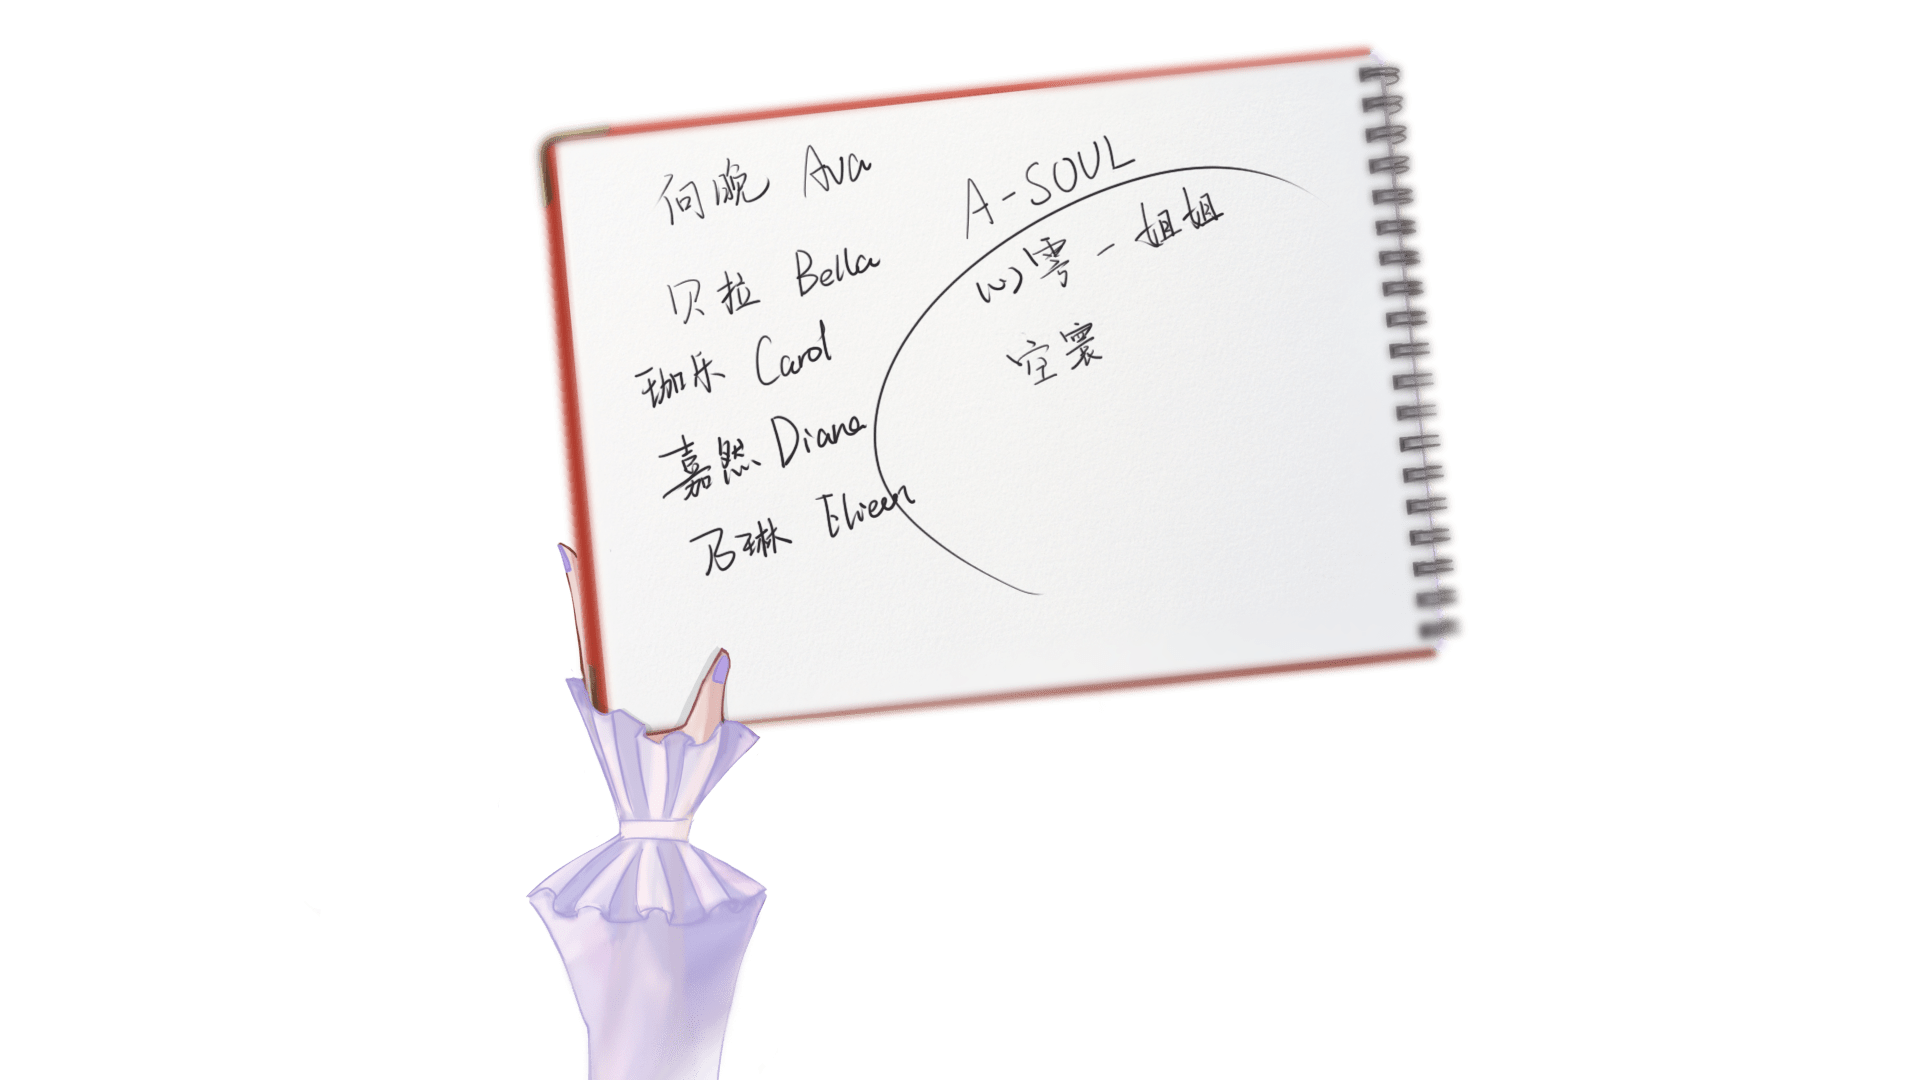 向晚 Ava
贝拉 Bella
珈乐 Carol
嘉然 Diana
乃琳 Eileen
A-SOUL
雩 - 姐姐
空寰